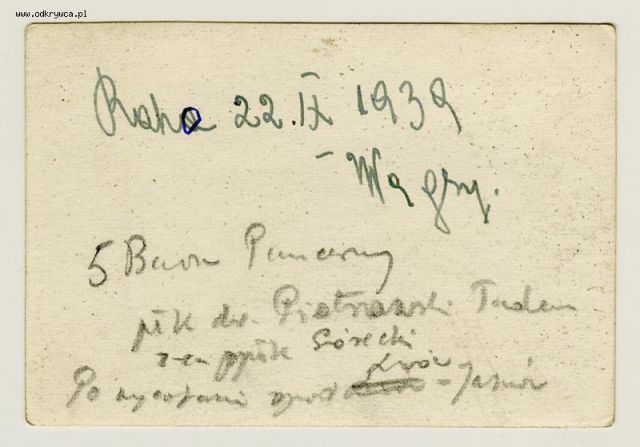 www.odkrywca.pl
Raho 22.IX 1939
– Węgry.
5 Baon Pancerny
płk dw. Piotrowski Tadeu
z-ca ppłk Górecki
Po wycofaniu Lwów
= Janów